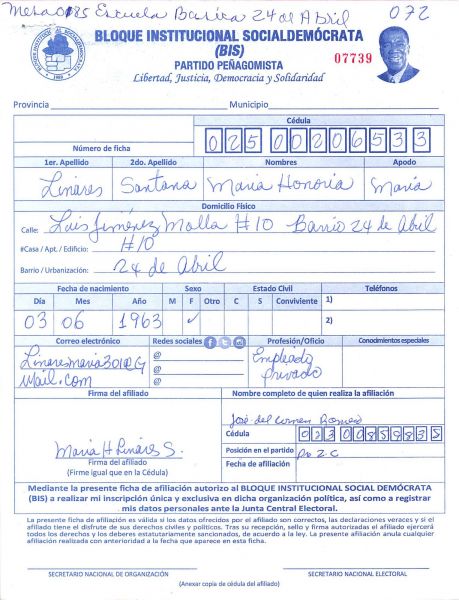 Mesa 0185 Escuela Basica 24 de Abril 072
BLOQUE INSTITUCIONAL SOCIALDEMÓCRATA
(BIS)
PARTIDO PEÑAGOMISTA
Libertad, Justicia, Democracia y Solidaridad
07739
Provincia Municipio
Cédula
Número de ficha 025 0020653 3
1er. Apellido 2do. Apellido Nombres Apodo
Linares Santana Maria Honoria Maria
Domicilio Físico
Calle: Luis Jiménez Molla #10 Barrio 24 de Abril
#Casa / Apt. / Edificio: #10
Barrio / Urbanización: 24 de Abril
Fecha de nacimiento Sexo Estado Civil Teléfonos
Día Mes Año M F Otro C S Conviviente 1)
03 06 1963 ✓ 2)
Correo electrónico Redes sociales Profesión/Oficio Conocimientos especiales
Linaresmaria301@G
Mail.com
@
@
@
Empleado
privado
Firma del afiliado Nombre completo de quien realiza la afiliación
José del Carmen Romero
Cédula 023 0085883 5
Maria H Linares S.
Firma del afiliado
(Firme igual que en la Cédula)
Posición en el partido
Fecha de afiliación
Mediante la presente ficha de afiliación autorizo al BLOQUE INSTITUCIONAL SOCIAL DEMÓCRATA
(BIS) a realizar mi inscripción única y exclusiva en dicha organización política, así como a registrar
mis datos personales ante la Junta Central Electoral.
La presente ficha de afiliación es válida si los datos ofrecidos por el afiliado son correctos, las declaraciones veraces y si el
afiliado tiene el disfrute de sus derechos civiles y políticos. Tras su recepción, sello y firma autorizadas el afiliado ejercerá
todos los derechos y los deberes estatutariamente sancionados, de acuerdo a la ley. La presente afiliación anula cualquier
afiliación realizada con anterioridad a la fecha que aparece en esta ficha.
SECRETARIO NACIONAL DE ORGANIZACIÓN SECRETARIO NACIONAL ELECTORAL
(Anexar copia de cédula del afiliado)